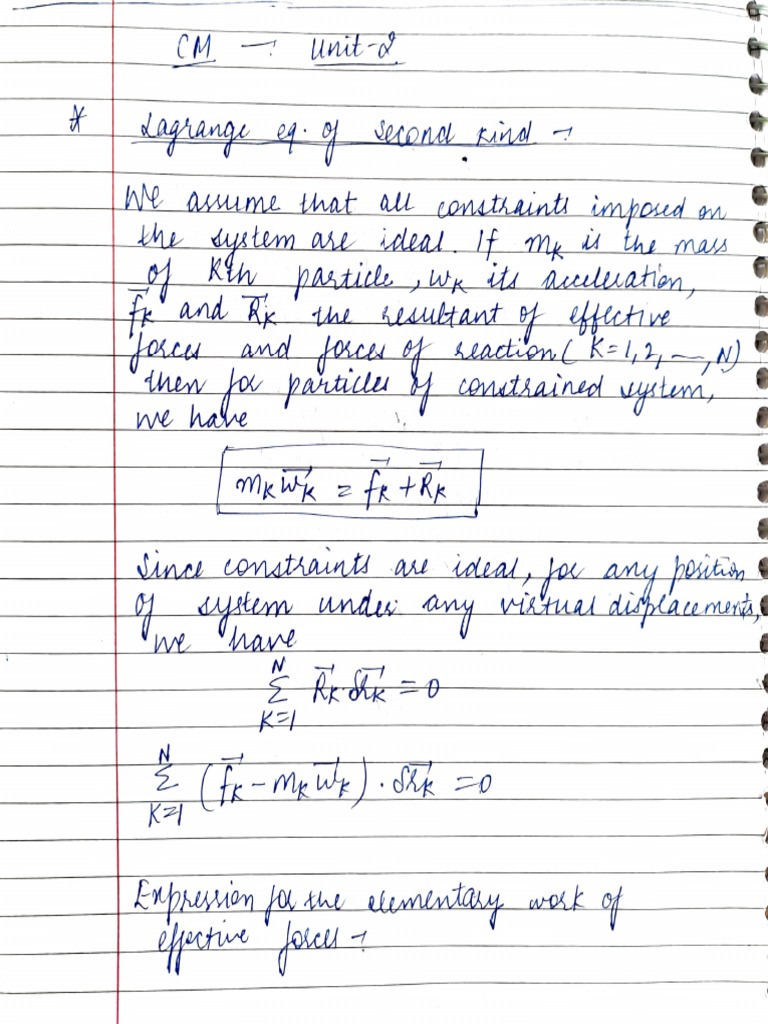 CM → Unit-2
* Lagrange eq. of second kind →
We assume that all constraints imposed on
the system are ideal. If mₖ is the mass
of Kth particle, wₖ its acceleration,
f⃗ₖ and R⃗ₖ the resultant of effective
forces and forces of reaction (K=1,2,—,N)
then for particles of constrained system,
we have
mₖw⃗ₖ = f⃗ₖ + R⃗ₖ
Since constraints are ideal, for any position
of system under any virtual displacements,
we have
N
Σ R⃗ₖ·δr⃗ₖ = 0
K=1
N
Σ (f⃗ₖ - mₖw⃗ₖ) · δr⃗ₖ = 0
K=1
Expression for the elementary work of
effective forces →